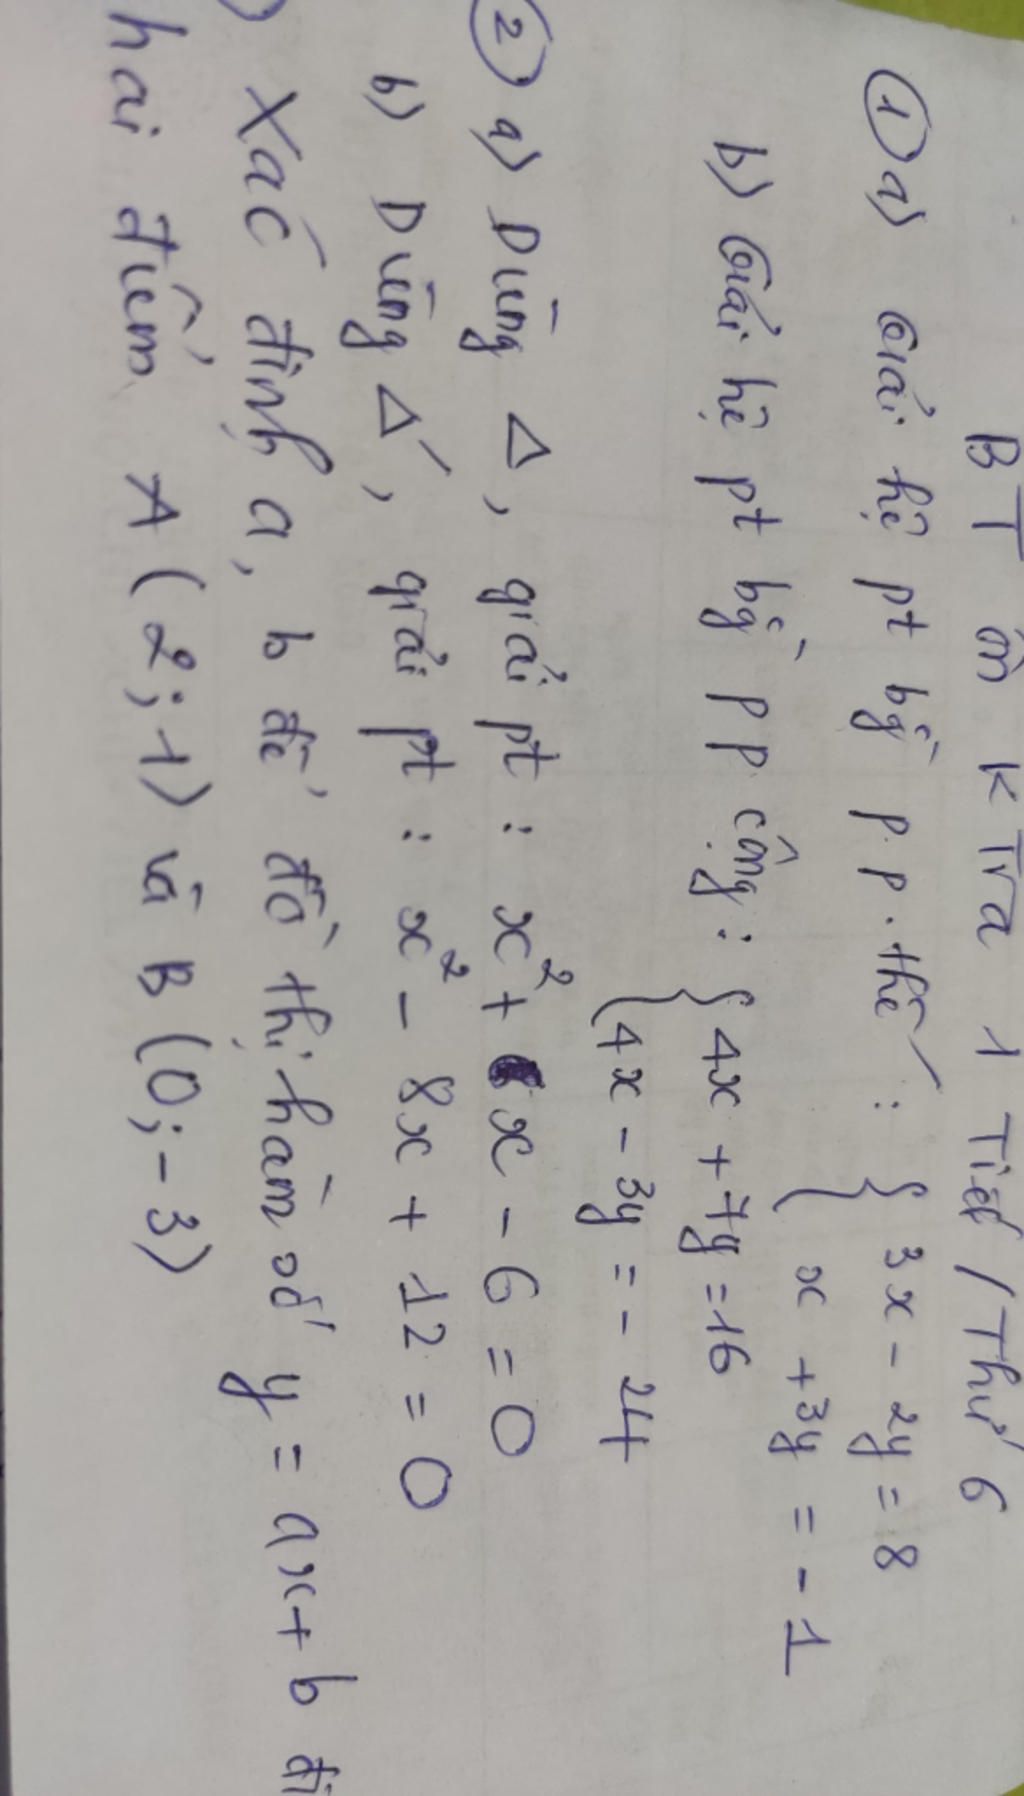 BT ôn KTra 1 Tiết / Thứ 6
① a) Giải hệ pt bg p p. thế : { 3x - 2y = 8
x + 3y = -1
b) Giải hệ pt bg p p cộng : { 4x + 7y = 16
4x - 3y = - 24
② a) Dùng Δ, giải pt : x² + x - 6 = 0
b) Dùng Δ', giải pt : x² - 8x + 12 = 0
) Xác định a, b để đồ thị hàm số y = ax + b đi
hai điểm A (2; 1) và B (0; -3)